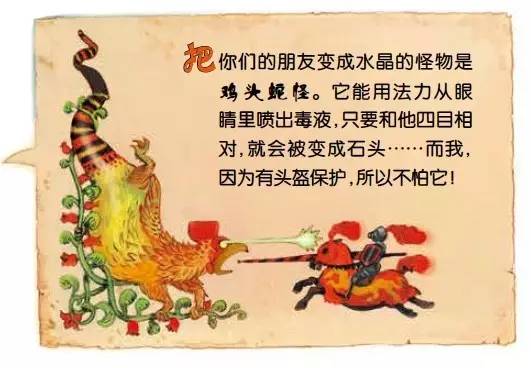 把你们的朋友变成水晶的怪物是
鸡头蛇怪。它能用法力从眼
睛里喷出毒液,只要和他四目相
对,就会被变成石头……而我,
因为有头盔保护,所以不怕它!